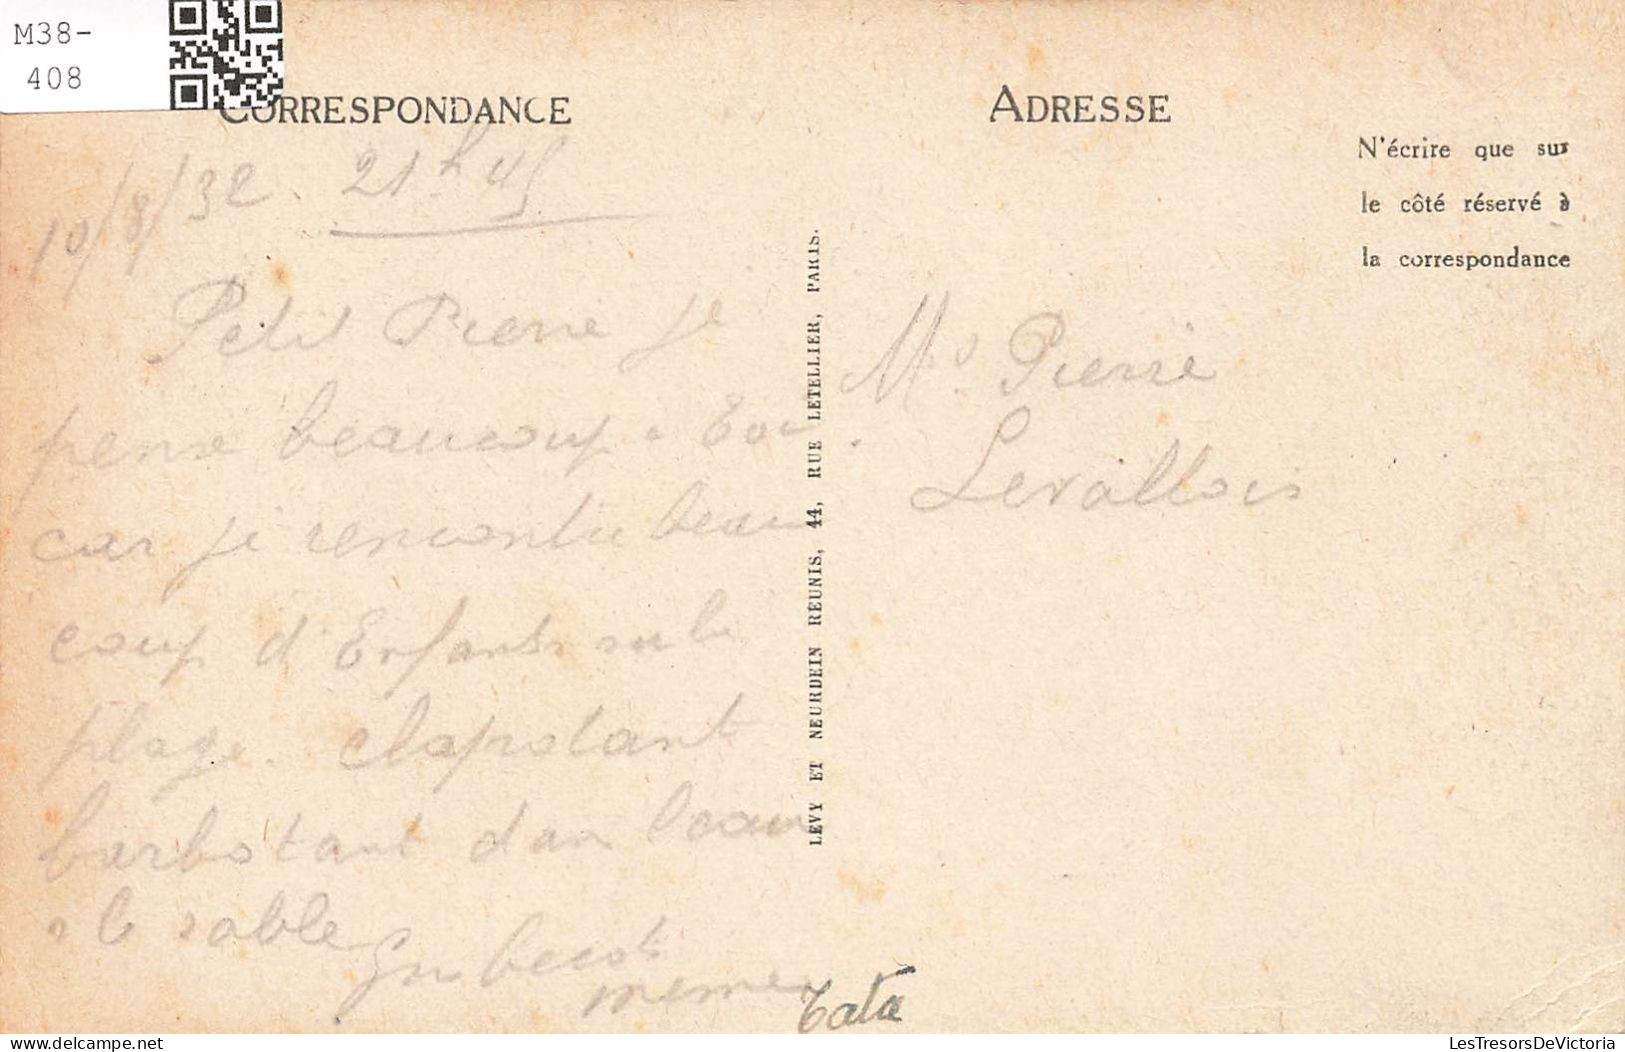 M38-
408
CORRESPONDANCE
10/8/32. 21 h 45
Petit Pierre je
pense beaucoup a Toi
car je rencontre beau
coup d'Enfants sur la
plage. clapotant
barbotant dan l'eau
le sable
Gros becots
memer
Tata
LEVY ET NEURDEIN REUNIS, 44, RUE LETELLIER, PARIS.
ADRESSE
N'écrire que sur
le côté réservé à
la correspondance
Mr Pierre
Levallois
delcampe.net
LesTresorsDeVictoria